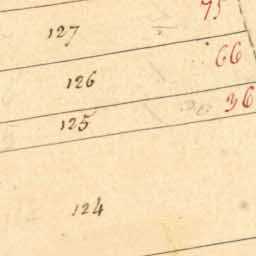 127 75
126 66
125 36
124